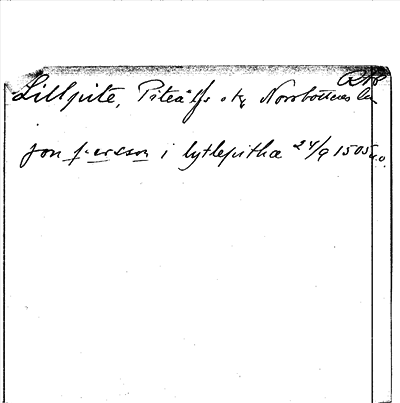 RAp
Lillpite, Piteå lfs ok, Norrbottens län
jon persson i lytlepitha 24/9 1505 u.o.